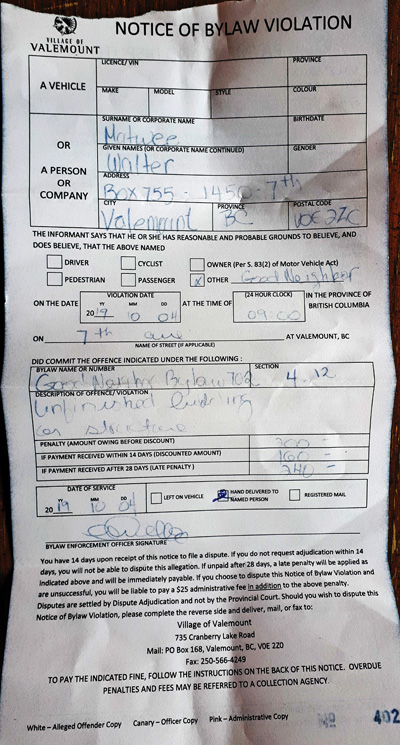 VILLAGE OF
VALEMOUNT
NOTICE OF BYLAW VIOLATION
A VEHICLE
LICENCE/VIN
PROVINCE
MAKE
MODEL
STYLE
COLOUR
OR
A PERSON
OR
COMPANY
SURNAME OR CORPORATE NAME
BIRTHDATE
Matwee
GIVEN NAMES (OR CORPORATE NAME CONTINUED)
GENDER
Walter
ADDRESS
Box 755 - 1450 - 7th
CITY
PROVINCE
POSTAL CODE
Valemount BC V0E 2Z0
THE INFORMANT SAYS THAT HE OR SHE HAS REASONABLE AND PROBABLE GROUNDS TO BELIEVE, AND
DOES BELIEVE, THAT THE ABOVE NAMED
DRIVER
CYCLIST
OWNER (Per S. 83(2) of Motor Vehicle Act)
PEDESTRIAN
PASSENGER
X OTHER Good Neighbor
ON THE DATE
VIOLATION DATE
YY MM DD
2019 10 04
AT THE TIME OF
(24 HOUR CLOCK)
09:00
IN THE PROVINCE OF
BRITISH COLUMBIA
ON 7th ave AT VALEMOUNT, BC
NAME OF STREET (IF APPLICABLE)
DID COMMIT THE OFFENCE INDICATED UNDER THE FOLLOWING :
BYLAW NAME OR NUMBER
SECTION
Good Neighbor Bylaw 702 4.12
DESCRIPTION OF OFFENCE/VIOLATION
Unfinished building
or structure
PENALTY (AMOUNT OWING BEFORE DISCOUNT) 200 -
IF PAYMENT RECEIVED WITHIN 14 DAYS (DISCOUNTED AMOUNT) 160 -
IF PAYMENT RECEIVED AFTER 28 DAYS (LATE PENALTY ) 240 -
DATE OF SERVICE
YY MM DD
2019 10 04
LEFT ON VEHICLE
HAND DELIVERED TO
NAMED PERSON
REGISTERED MAIL
BYLAW ENFORCEMENT OFFICER SIGNATURE
You have 14 days upon receipt of this notice to file a dispute. If you do not request adjudication within 14
days, you will not be able to dispute this allegation. If unpaid after 28 days, a late penalty will be applied as
indicated above and will be immediately payable. If you choose to dispute this Notice of Bylaw Violation and
are unsuccessful, you will be liable to pay a $25 administrative fee in addition to the above penalty.
Disputes are settled by Dispute Adjudication and not by the Provincial Court. Should you wish to dispute this
Notice of Bylaw Violation, please complete the reverse side and deliver, mail, or fax to:
Village of Valemount
735 Cranberry Lake Road
Mail: PO Box 168, Valemount, BC, V0E 2Z0
Fax: 250-566-4249
TO PAY THE INDICATED FINE, FOLLOW THE INSTRUCTIONS ON THE BACK OF THIS NOTICE. OVERDUE
PENALTIES AND FEES MAY BE REFERRED TO A COLLECTION AGENCY.
White – Alleged Offender Copy Canary – Officer Copy Pink – Administrative Copy
No 402